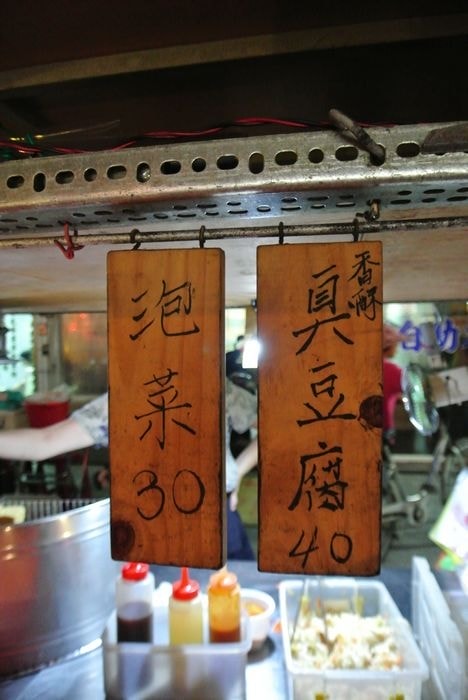 泡菜
30
香酥
臭豆腐
40
白幼